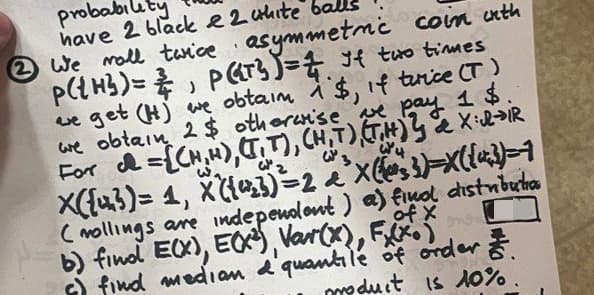 probability
have 2 black & 2 white balls
② We roll twice asymmetric coin with
P({H})= 3/4 , P({T})= 1/4. If two times
we get (H) we obtain 1 $, if twice (T)
we obtain 2 $ otherwise we pay 1 $.
For Ω = {(H,H), (T,T), (H,T), (T,H)} & X:Ω→ℝ
ω₁ ω² ω³ ω⁴
X({ω₁})= 1, X({ω₂})=2 & X({ω₃})=X({ω₄})=-1
(rollings are independent) a) find distribution
of X
b) find E(X), E(X²), Var(X), Fₓ(x₀)
c) find median & quantile of order
product is 10%